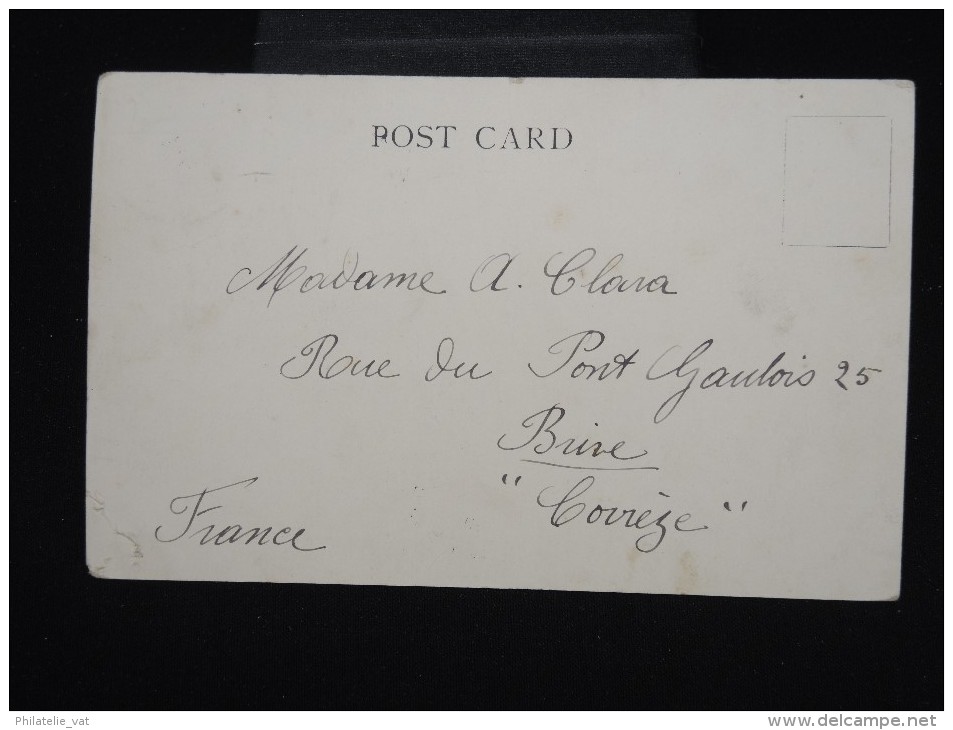 POST CARD
Madame A. Clara
Rue du Pont Gaulois 25
Brive
" Corrèze "
France
Philatelie_vat
www.delcampe.net